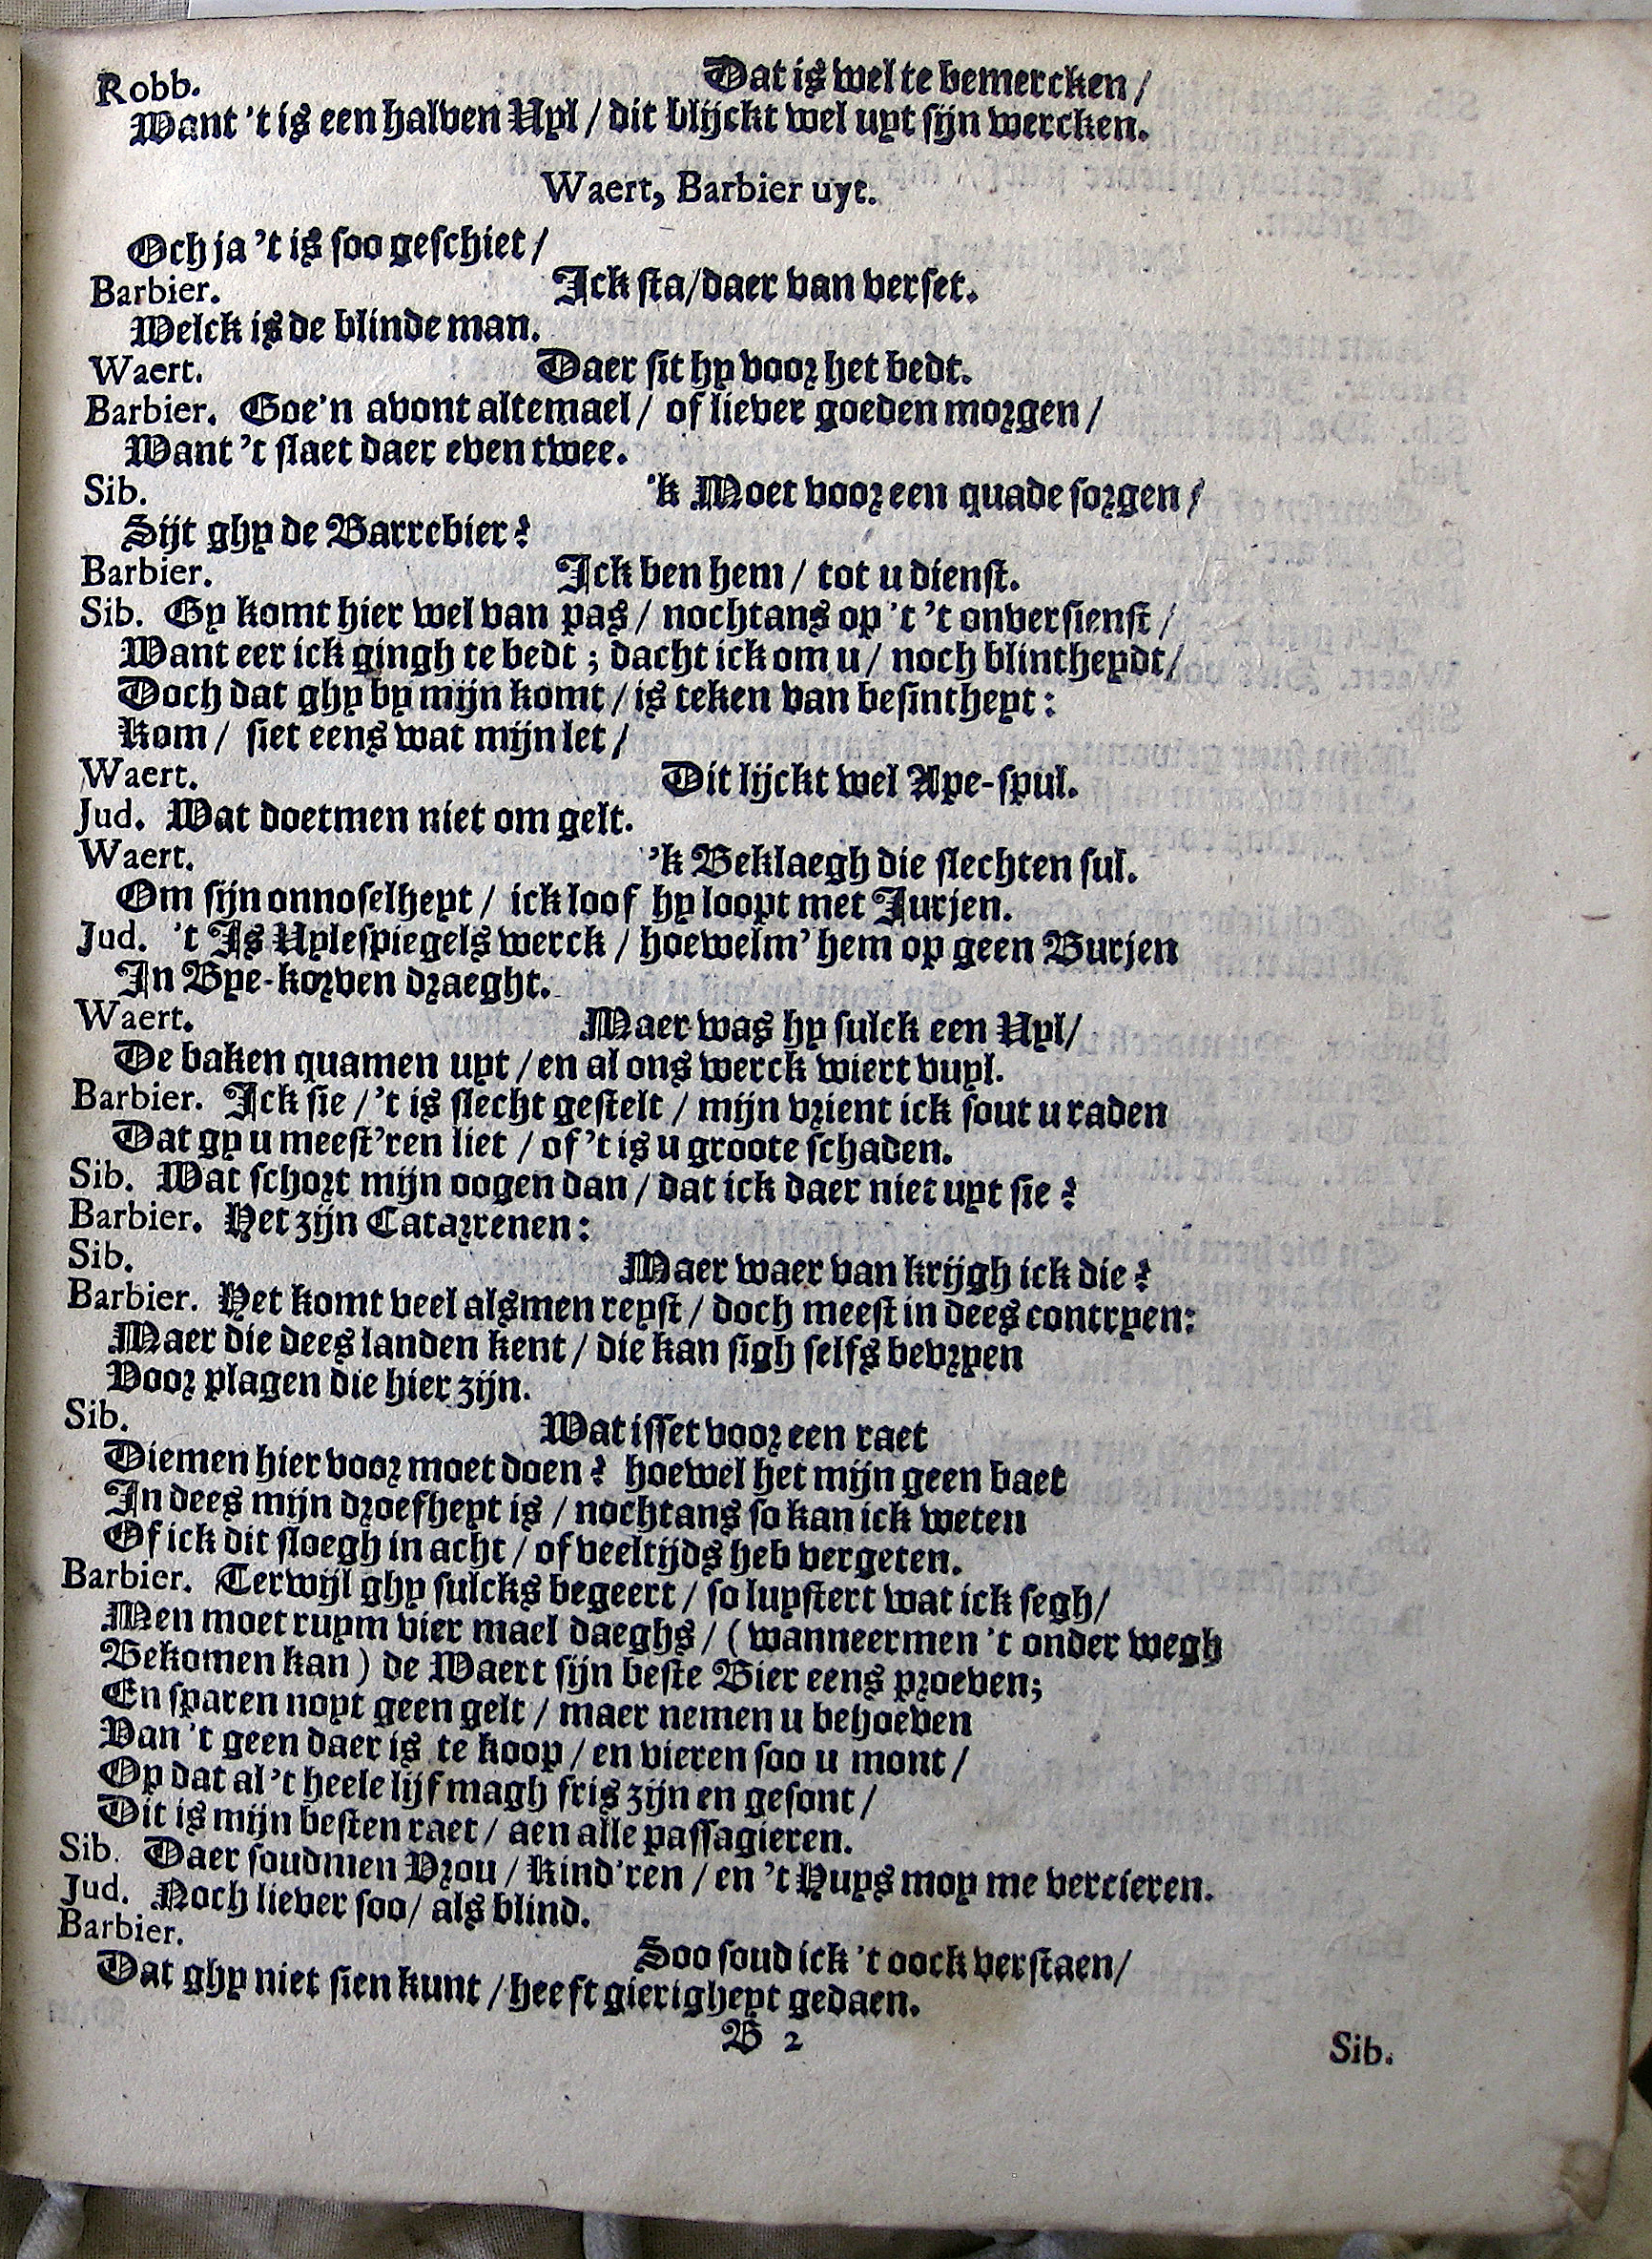 Robb. Dat is wel te bemercken /
Want 't is een halven Uyl / dit blijckt wel uyt sijn wercken.
Waert, Barbier uyt.
Och ja 't is soo geschiet /
Barbier. Ick sta/daer van verset.
Welck is de blinde man.
Waert. Daer sit hy voor het bedt.
Barbier. Goe'n avont altemael / of liever goeden morgen /
Want 't slaet daer even twee.
Sib. 'k Moet voor een quade sorgen /
Sijt ghy de Barrebier?
Barbier. Ick ben hem / tot u dienst.
Sib. Gy komt hier wel van pas / nochtans op 't 't onversienst /
Want eer ick gingh te bedt ; dacht ick om u / noch blintheydt /
Doch dat ghy by mijn komt / is teken van besintheyt :
Kom / siet eens wat mijn let /
Waert. Dit lijckt wel Ape-spul.
Jud. Wat doetmen niet om gelt.
Waert. 'k Beklaegh die slechten sul.
Om sijn onnoselheyt / ick loof hy loopt met Jurjen.
Jud. 't Is Uylespiegels werck / hoewelm' hem op geen Burjen
In Bye-korven draeght.
Waert. Maer was hy sulck een Uyl /
De baken quamen uyt / en al ons werck wiert vuyl.
Barbier. Ick sie / 't is slecht gestelt / mijn vrient ick sout u raden
Dat gy u meest'ren liet / of 't is u groote schaden.
Sib. Wat schort mijn oogen dan / dat ick daer niet uyt sie?
Barbier. Het zijn Catarrenen :
Sib. Maer waer van krijgh ick die?
Barbier. Het komt veel alsmen reyst / doch meest in dees contryen:
Maer die dees landen kent / die kan sigh selfs bevryen
Voor plagen die hier zijn.
Sib. Wat isset voor een raet
Diemen hier voor moet doen? hoewel het mijn geen baet
In dees mijn droefheyt is / nochtans so kan ick weten
Of ick dit sloegh in acht / of veeltijds heb vergeten.
Barbier. Terwijl ghy sulcks begeert / so luystert wat ick segh /
Men moet ruym vier mael daeghs / ( wanneermen 't onder wegh
Bekomen kan ) de Waert sijn beste Bier eens proeven;
En sparen noyt geen gelt / maer nemen u behoeven
Van 't geen daer is te koop / en vieren soo u mont /
Op dat al 't heele lijf magh fris zijn en gesont /
Dit is mijn besten raet / aen alle passagieren.
Sib. Daer soudmen Vrou / Kind'ren / en 't Huys moy me vercieren.
Jud. Noch liever soo / als blind.
Barbier. Soo soud ick 't oock verstaen /
Dat ghy niet sien kunt / heeft gierigheyt gedaen.
B 2
Sib.